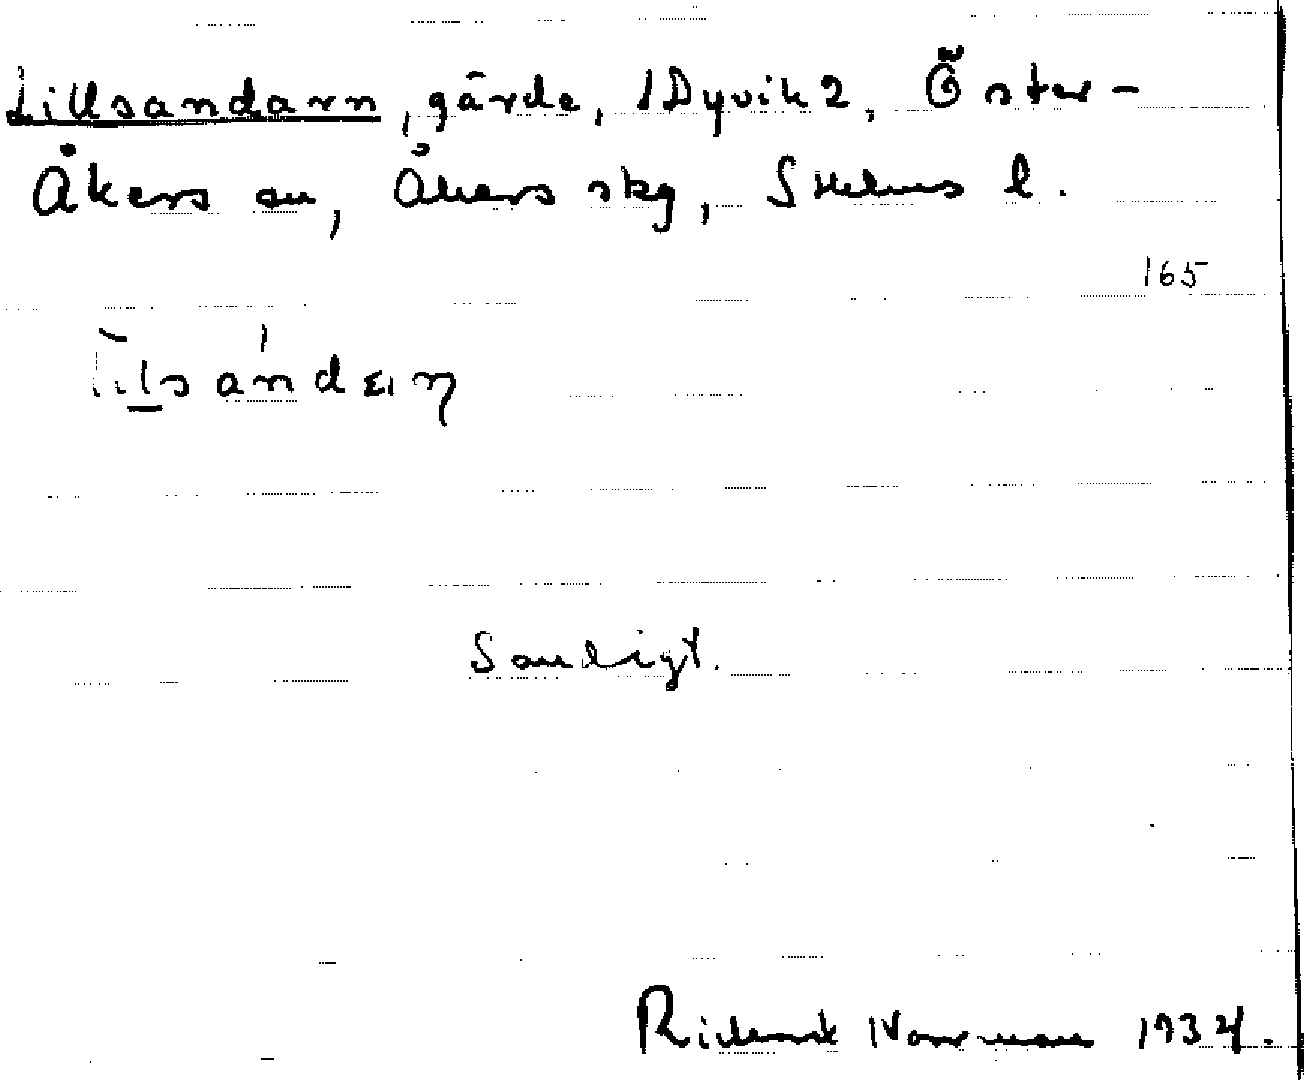 Lillsandarn, gärde, 1Dyvik2, Öster-
Åkers sn, Åkers skg, Sthlms l.
165
Sandigt.
Rickard Norrman 1934.